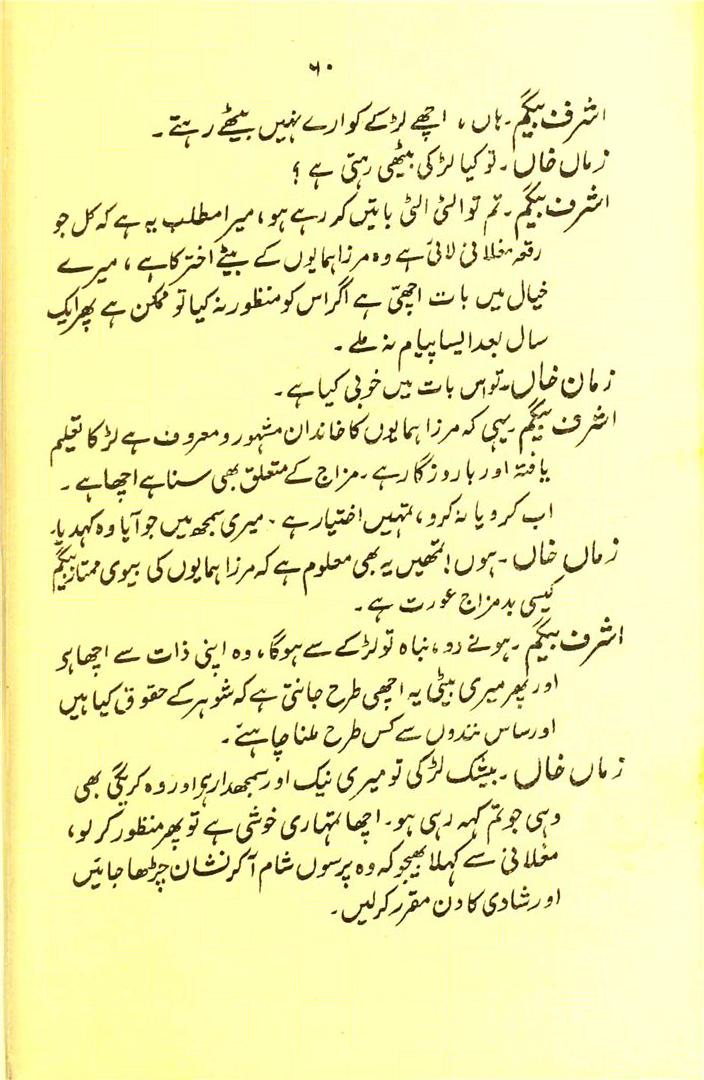 ۶۰
اشرف بیگم۔ ہاں، اچھے لڑکے کوارے نہیں بیٹھے رہتے۔
زماں خاں۔ تو کیا لڑکی بیٹھی رہتی ہے؟
اشرف بیگم۔ تم تو الٹی الٹی باتیں کر رہے ہو، میرا مطلب یہ ہے کہ کل جو
رقعہ مغلانی لائی ہے وہ مرزا ہمایوں کے بیٹے اختر کا ہے، میرے
خیال میں بات اچھی ہے اگر اس کو منظور نہ کیا تو ممکن ہے پھر ایک
سال بعد ایسا پیام نہ ملے۔
زمان خاں۔ تو اس بات میں خوبی کیا ہے۔
اشرف بیگم۔ یہی کہ مرزا ہمایوں کا خاندان مشہور و معروف ہے لڑکا تعلیم
یافتہ اور با روزگار ہے۔ مزاج کے متعلق بھی سنا ہے اچھا ہے۔
اب کرو یا نہ کرو، تمہیں اختیار ہے۔ میری سمجھ میں جو آیا وہ کہدیا۔
زماں خاں۔ ہوں! تمھیں یہ بھی معلوم ہے کہ مرزا ہمایوں کی بیوی ممتاز بیگم
کیسی بد مزاج عورت ہے۔
اشرف بیگم۔ ہونے دو، نباہ تو لڑکے سے ہوگا، وہ اپنی ذات سے اچھا ہو
اور پھر میری بیٹی یہ اچھی طرح جانتی ہے کہ شوہر کے حقوق کیا ہیں
اور ساس نندوں سے کس طرح ملنا چاہئے۔
زماں خاں۔ بیشک لڑکی تو میری نیک اور سمجھدار ہے اور وہ کریگی بھی
وہی جو تم کہہ رہی ہو۔ اچھا تمہاری خوشی ہے تو پھر منظور کر لو،
مغلانی سے کہلا بھیجو کہ وہ پرسوں شام آ کر نشان چڑھا جائیں
اور شادی کا دن مقرر کر لیں۔